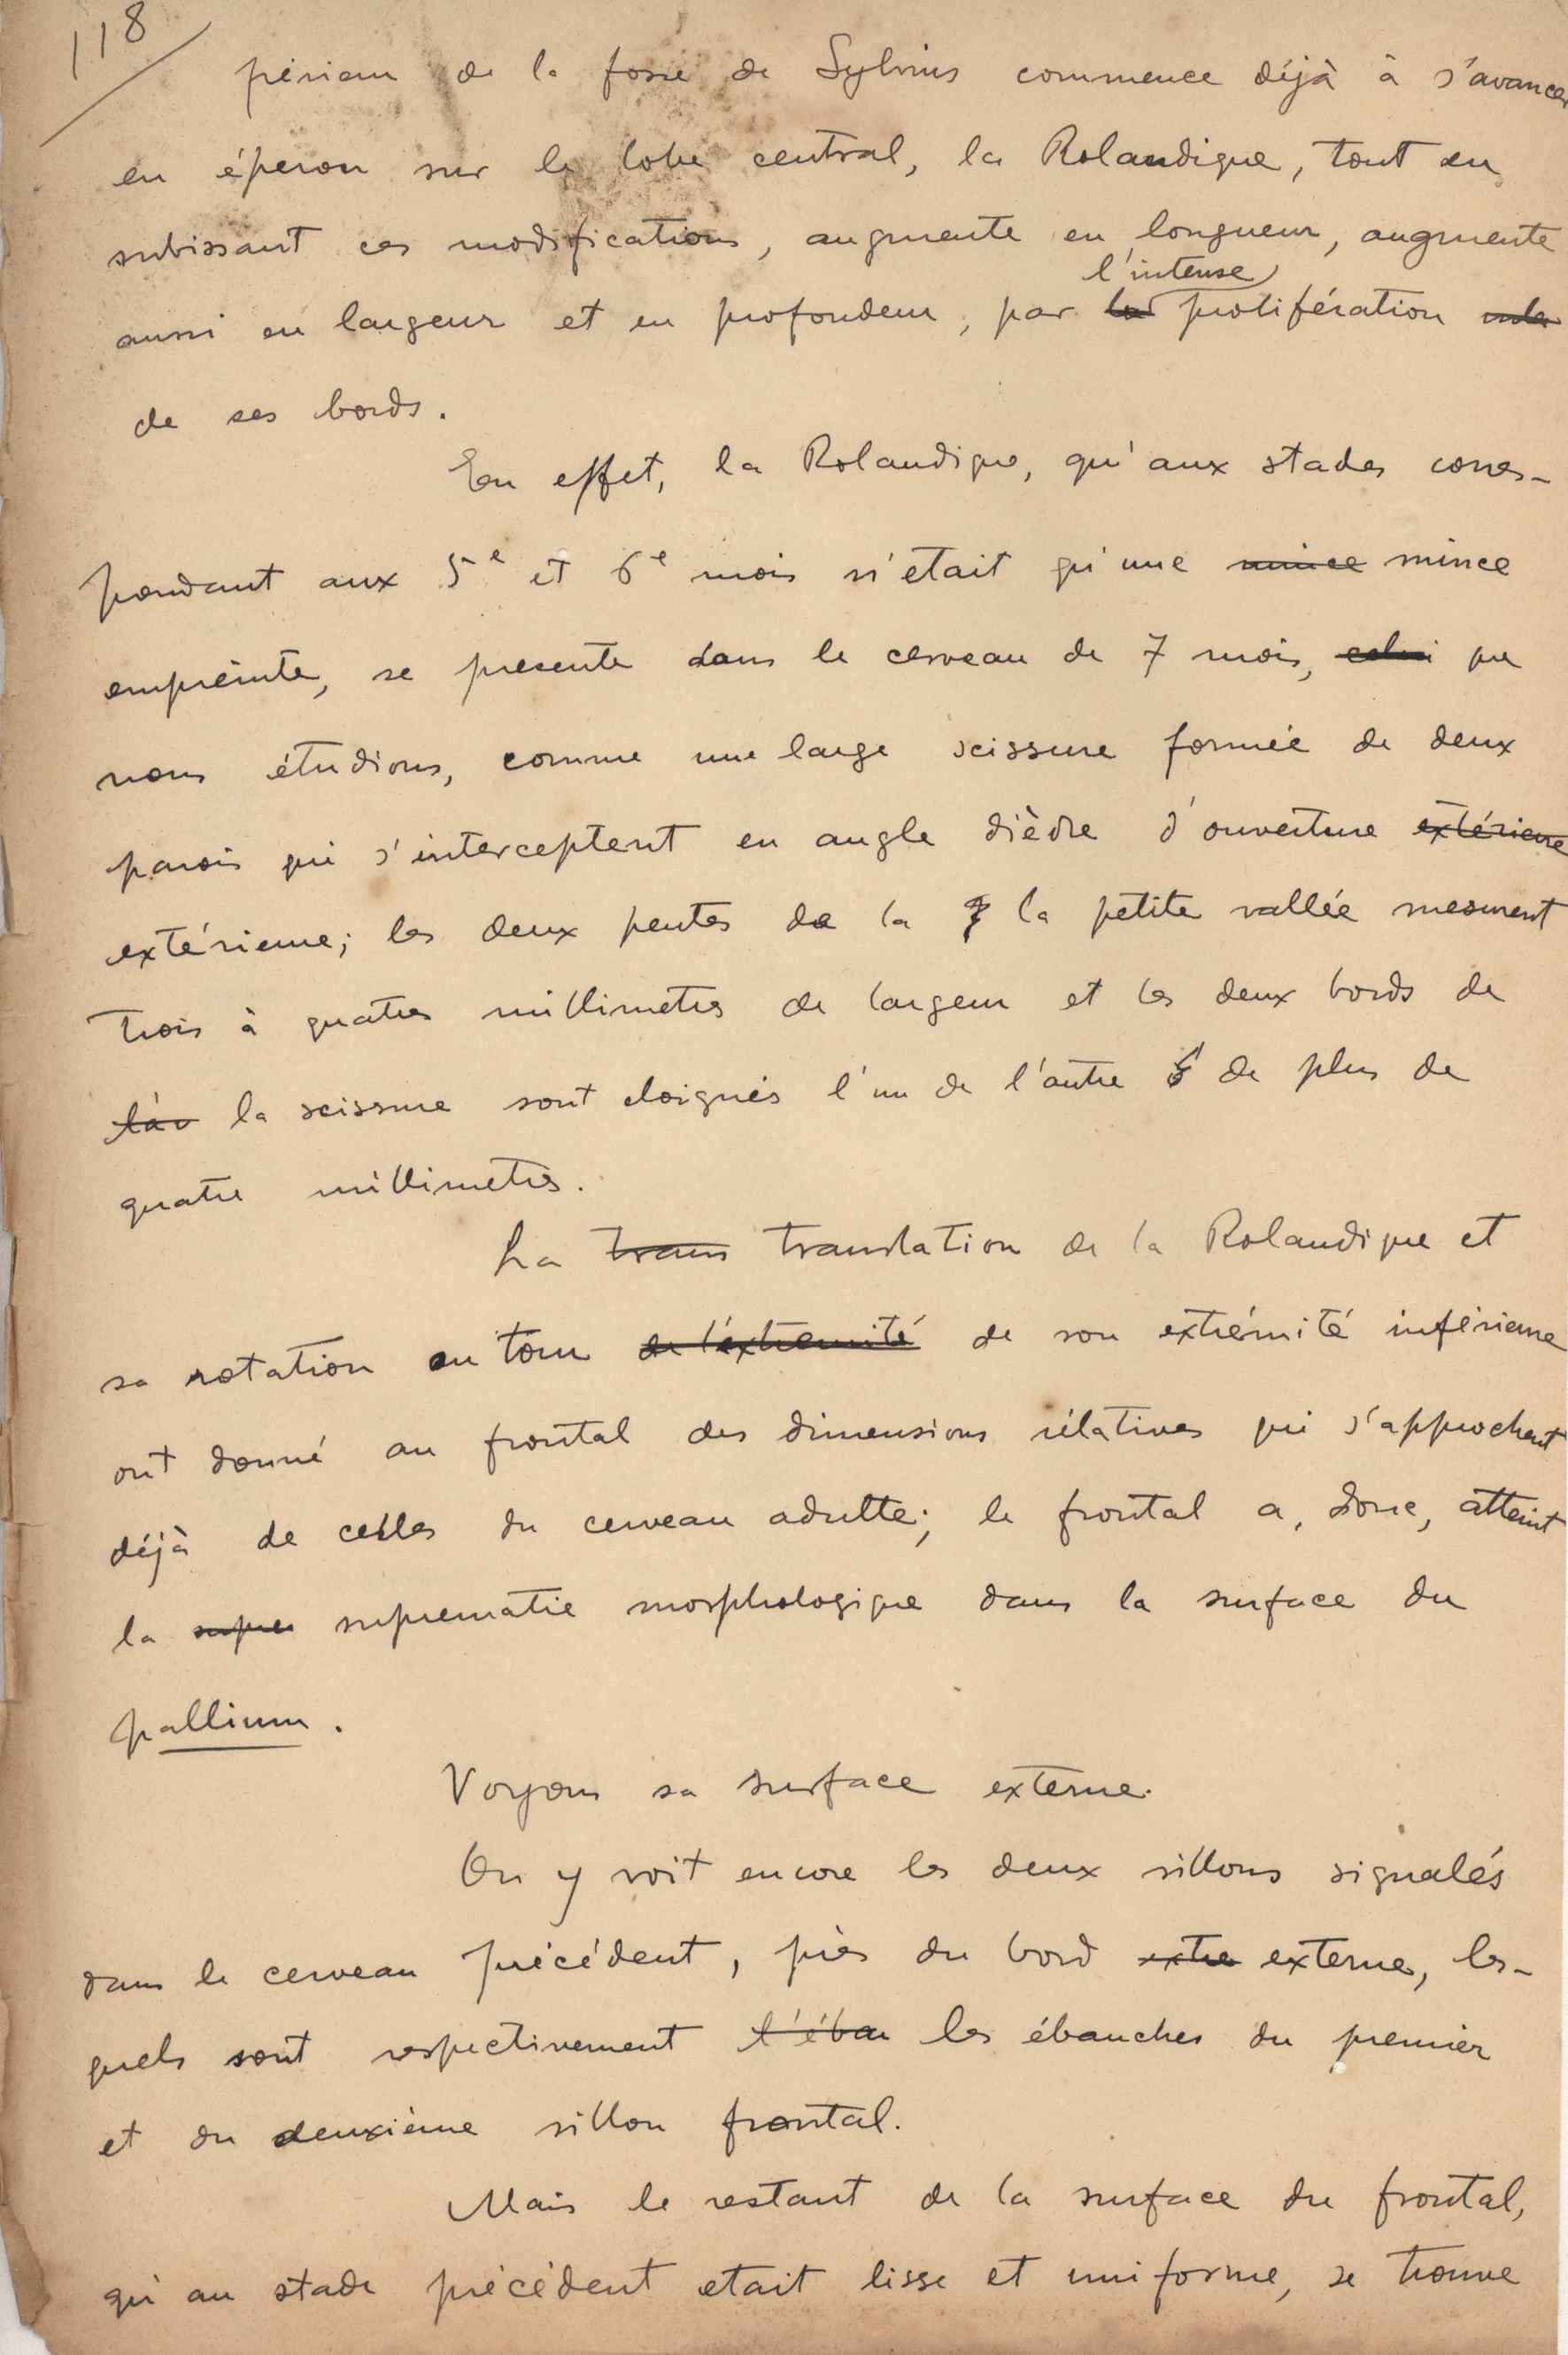 118
périeur de la fosse de Sylvius commence déjà à s'avancer
en éperon sur le lobe central, la Rolandique, tout en
subissant ces modifications, augmente en longueur, augmente
l'intense
aussi en largeur et en profondeur, par la prolifération
de ses bords.
En effet, la Rolandique, qu'aux stades corres-
pondant aux 5e et 6e mois n'etait qu'une mince mince
empreinte, se presente dans le cerveau de 7 mois, celui que
nous étudions, comme une large scissure formée de deux
parois qui s'interceptent en angle dièdre d'ouverture extérieure
extérieure; les deux pentes de la la petite vallée mesurent
trois à quatre millimetres de largeur et les deux bords de
la scissure sont eloignés l'un de l'autre de plus de
quatre millimetres.
La trans translation de la Rolandique et
sa rotation au tour de l'extremité de son extrémité inférieure
ont donné au frontal des dimensions rélatives qui s'approchent
déjà de celles du cerveau adulte; le frontal a, donc, atteint
la supre suprematie morphologique dans la surface du
pallium.
Voyons sa surface externe.
On y voit encore les deux sillons signalés
dans le cerveau précédent, près du bord extre externe, les-
quels sont respectivement l'ébau les ébauches du premier
et du deuxième sillon frontal.
Mais le restant de la surface du frontal,
qui au stade précédent etait lisse et uniforme, se trouve